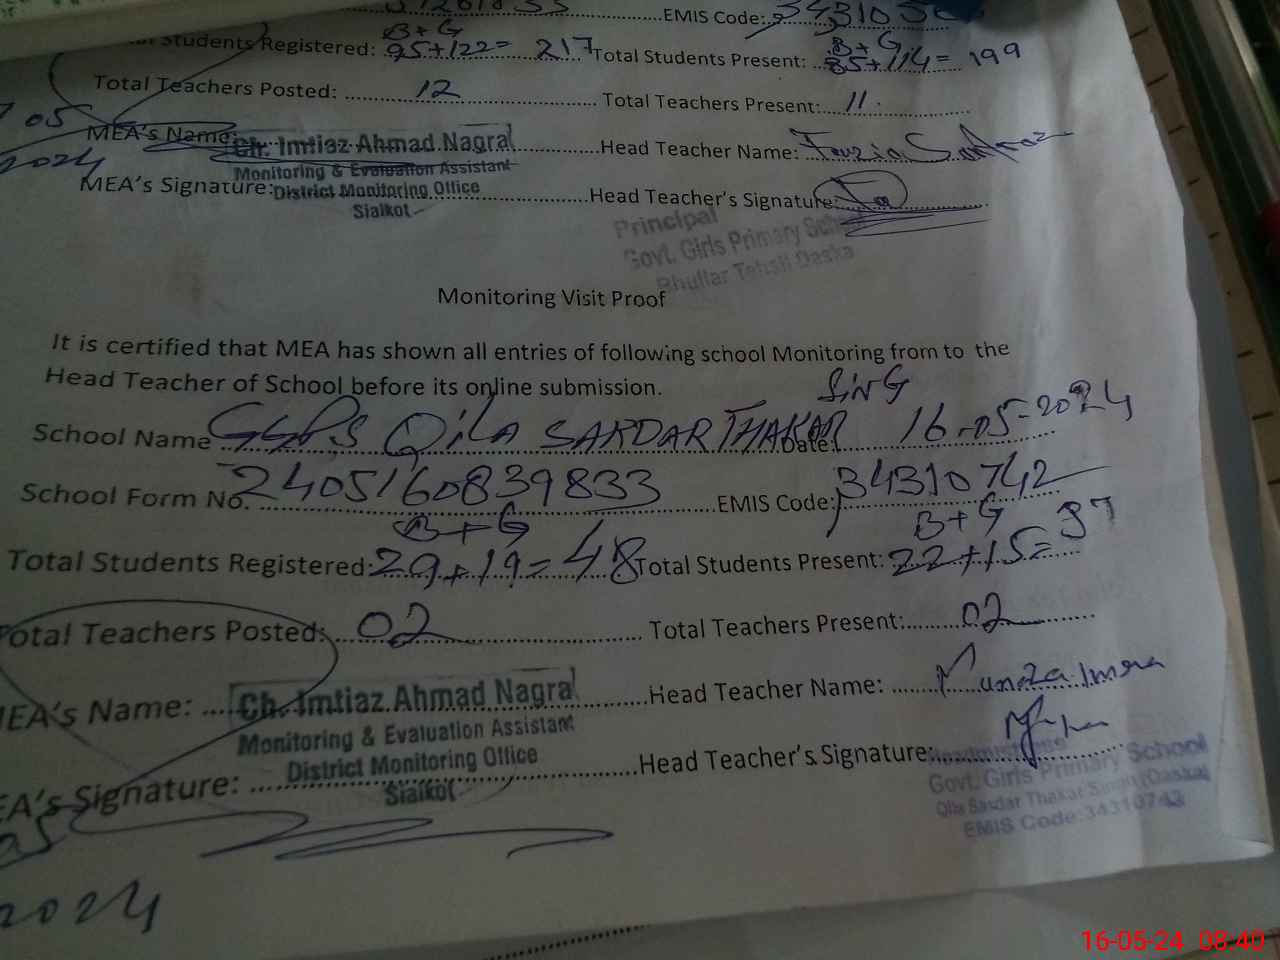 EMIS Code:
B + G
Students Registered: 95+122= 217 Total Students Present: B + G 85+114= 199
Total Teachers Posted: 12 Total Teachers Present: 11
05
2024
MEA's Name: Ch. Imtiaz Ahmad Nagra Head Teacher Name: Fouzia
Monitoring & Evaluation Assistant
MEA's Signature: District Monitoring Office Head Teacher's Signature:
Sialkot
Principal
Govt. Girls Primary School
Bhullar Tehsil Daska
Monitoring Visit Proof
It is certified that MEA has shown all entries of following school Monitoring from to the
Head Teacher of School before its online submission.
School Name GGPS QILA SARDAR THAKAR SING Date: 16-05-2024
School Form No. 240516083983 3 EMIS Code: 34310742
B + G B + G
Total Students Registered: 29+19= 48 Total Students Present: 22+15= 37
Total Teachers Posted: 02 Total Teachers Present: 02
MEA's Name: Ch. Imtiaz Ahmad Nagra Head Teacher Name:
Monitoring & Evaluation Assistant
District Monitoring Office
MEA's Signature: Sialkot Head Teacher's Signature:
Headmistress
Govt. Girls Primary School
Qila Sardar Thakar Singh (Daska)
EMIS Code: 34310742
05
2024
16-05-24 08:40